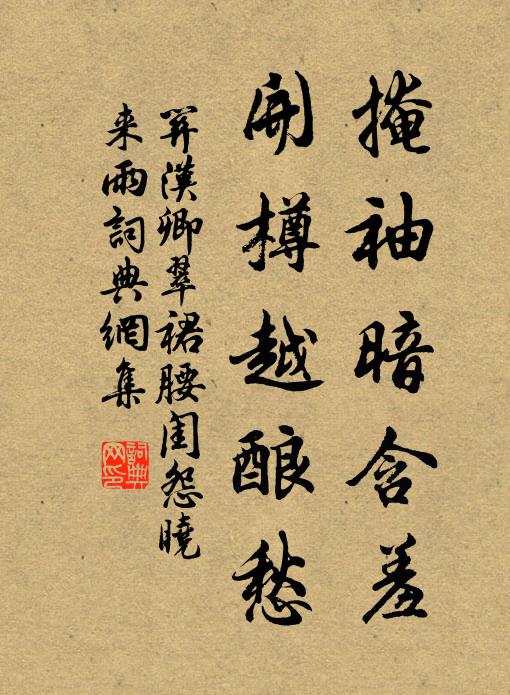 掩袖暗含羞
開樽越酿愁
关漢卿翠裙腰闺怨曉
来雨詞典網集
詞典
网印